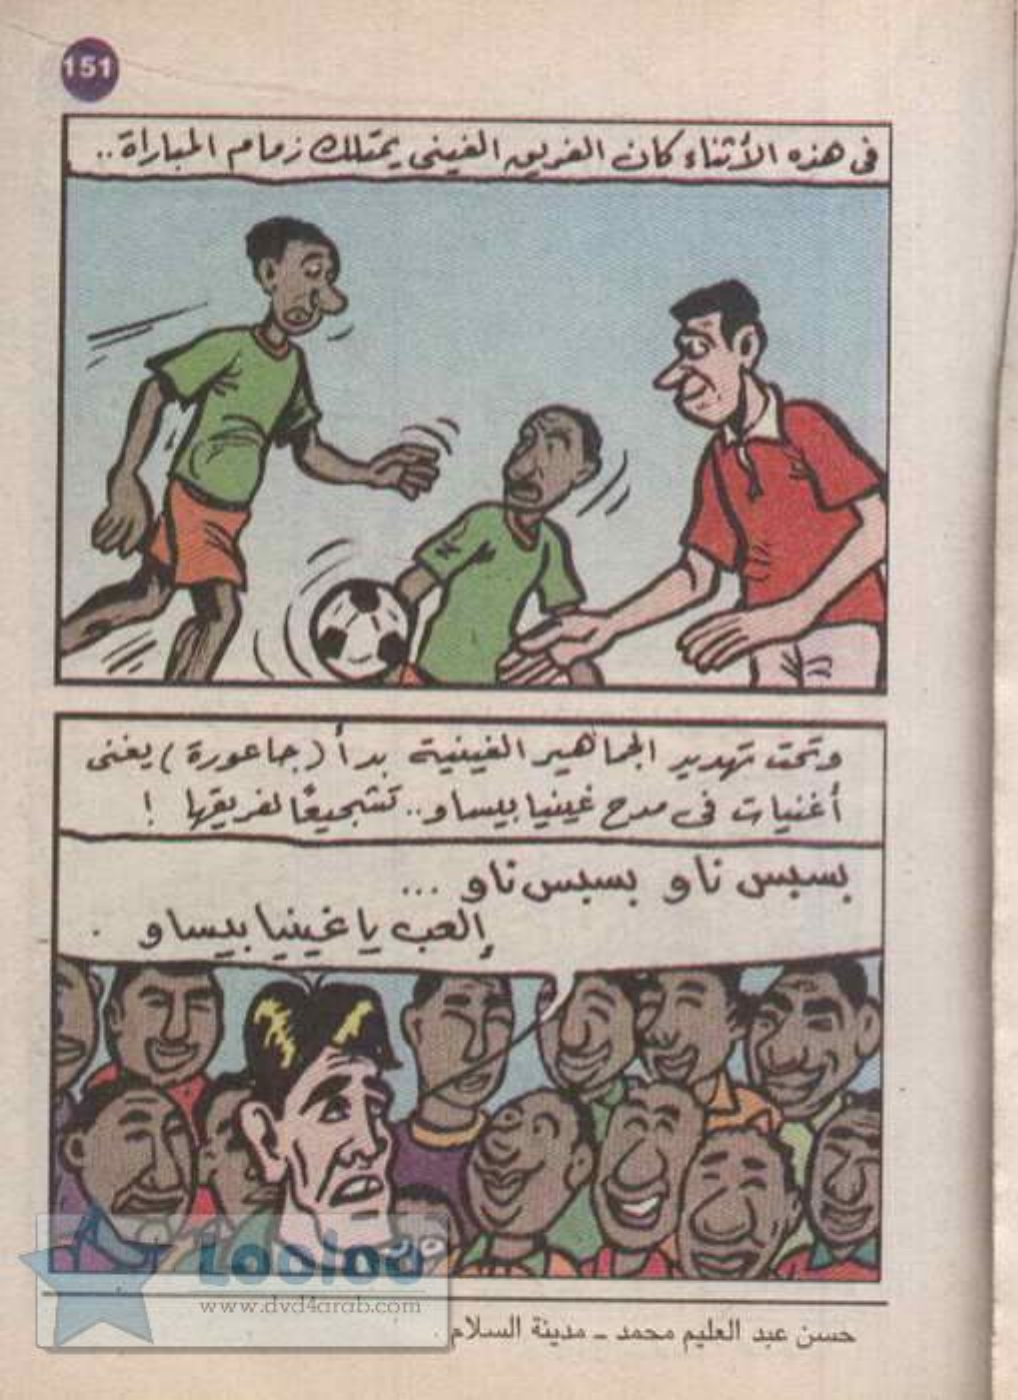 151
فى هذه الأثناء كان الفريق الغينى يمتلك زمام المباراة..
وتحت تهديد الجماهير الغينية بدأ (جاعورة) يغنى
أغنيات فى مدح غينيا بيساو.. تشجيعًا لفريقها !
بسبس ناو بسبس ناو ...
إلعب يا غينيا بيساو .
Looloo
www.dvd4arab.com
حسن عبد العليم محمد – مدينة السلام .